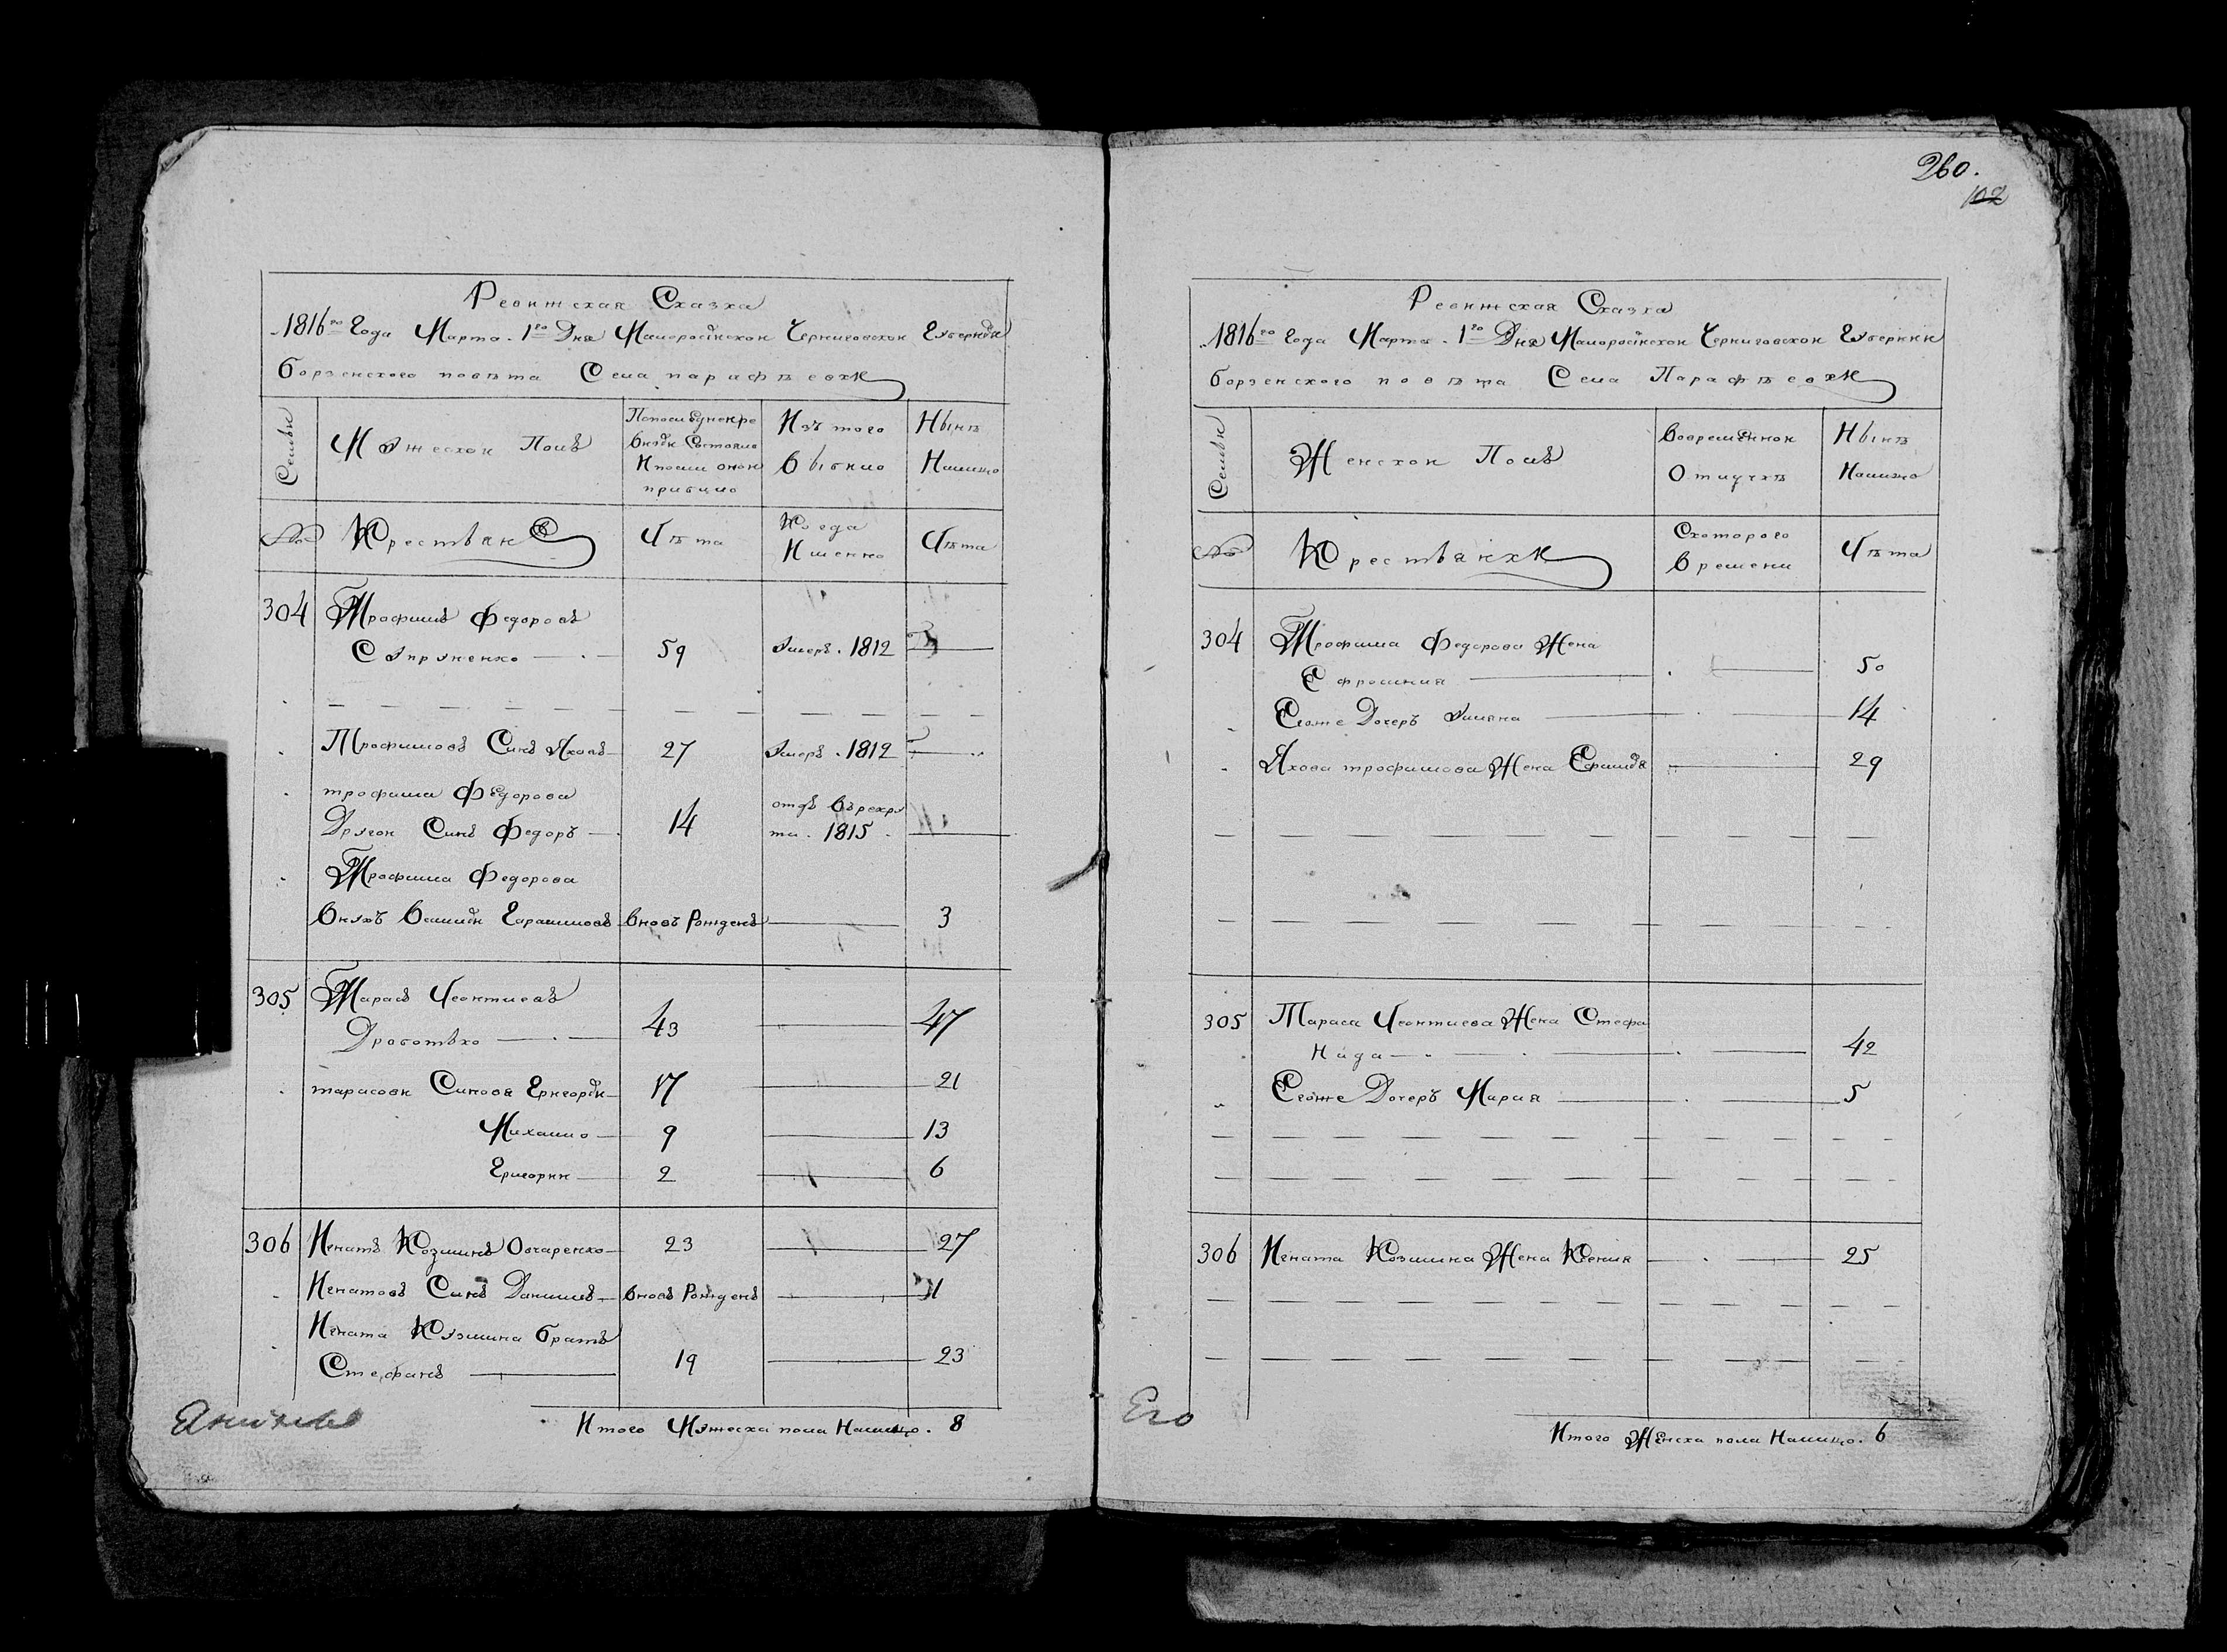 Ревижская Сказка
1816го Года Марта 1го Дня Малоросійской Черниговской Губерніи
борзенского повѣта Села парафѣевки
Семьи
Мужеской Полъ
Попоследней ре
визіи Состояло
И после оной
прибило
Изъ того
Выбило
Нынѣ
Налицо
№
Крестьяне
Лѣта
Когда
Имянно
Лѣта
304 Трофимъ Федоровъ
Супруненко 59 Умеръ 1812
Трофимовъ Синъ Яковъ 27 Умеръ 1812
трофима Федорова
Другой Синъ Федоръ 14 отдъ Врекру
ти 1815
Трофима Федорова
Внукъ Василій Гарасимовъ вновъ Рожденъ 3
305 Тарасъ Леонтиевъ
Дроботько 43 47
тарасови Синовя Григорій 17 21
Михайло 9 13
Григорий 2 6
306 Игнатъ Козминъ Овчаренко 23 27
Игнатовъ Синъ Данилъ вновъ Рожденъ 1
Игната Кузмина братъ
Стефанъ 19 23
Итого Мужеска пола Налицо. 8
260.
102
Ревижская Сказка
1816го Года Марта 1го Дня Малоросійской Черниговской Губернии
борзенского повѣта Села Парафѣевки
Семьи
Женской Полъ
Вовременной
Отлучкѣ
Нынѣ
Налицо
№
Крестьянки
Скоторого
Времени
Лѣта
304 Трофима Федорова Жена
Ефросиния 50
Егоже Дочеръ Улияна 14
Якова трофимова Жена Ефимія 29
305 Тараса Леонтиева Жена Стефа
нида 42
Егоже Дочеръ Мария 5
306 Игната Козмина Жена Ксения 25
Его
Итого Женска пола Налицо. 6